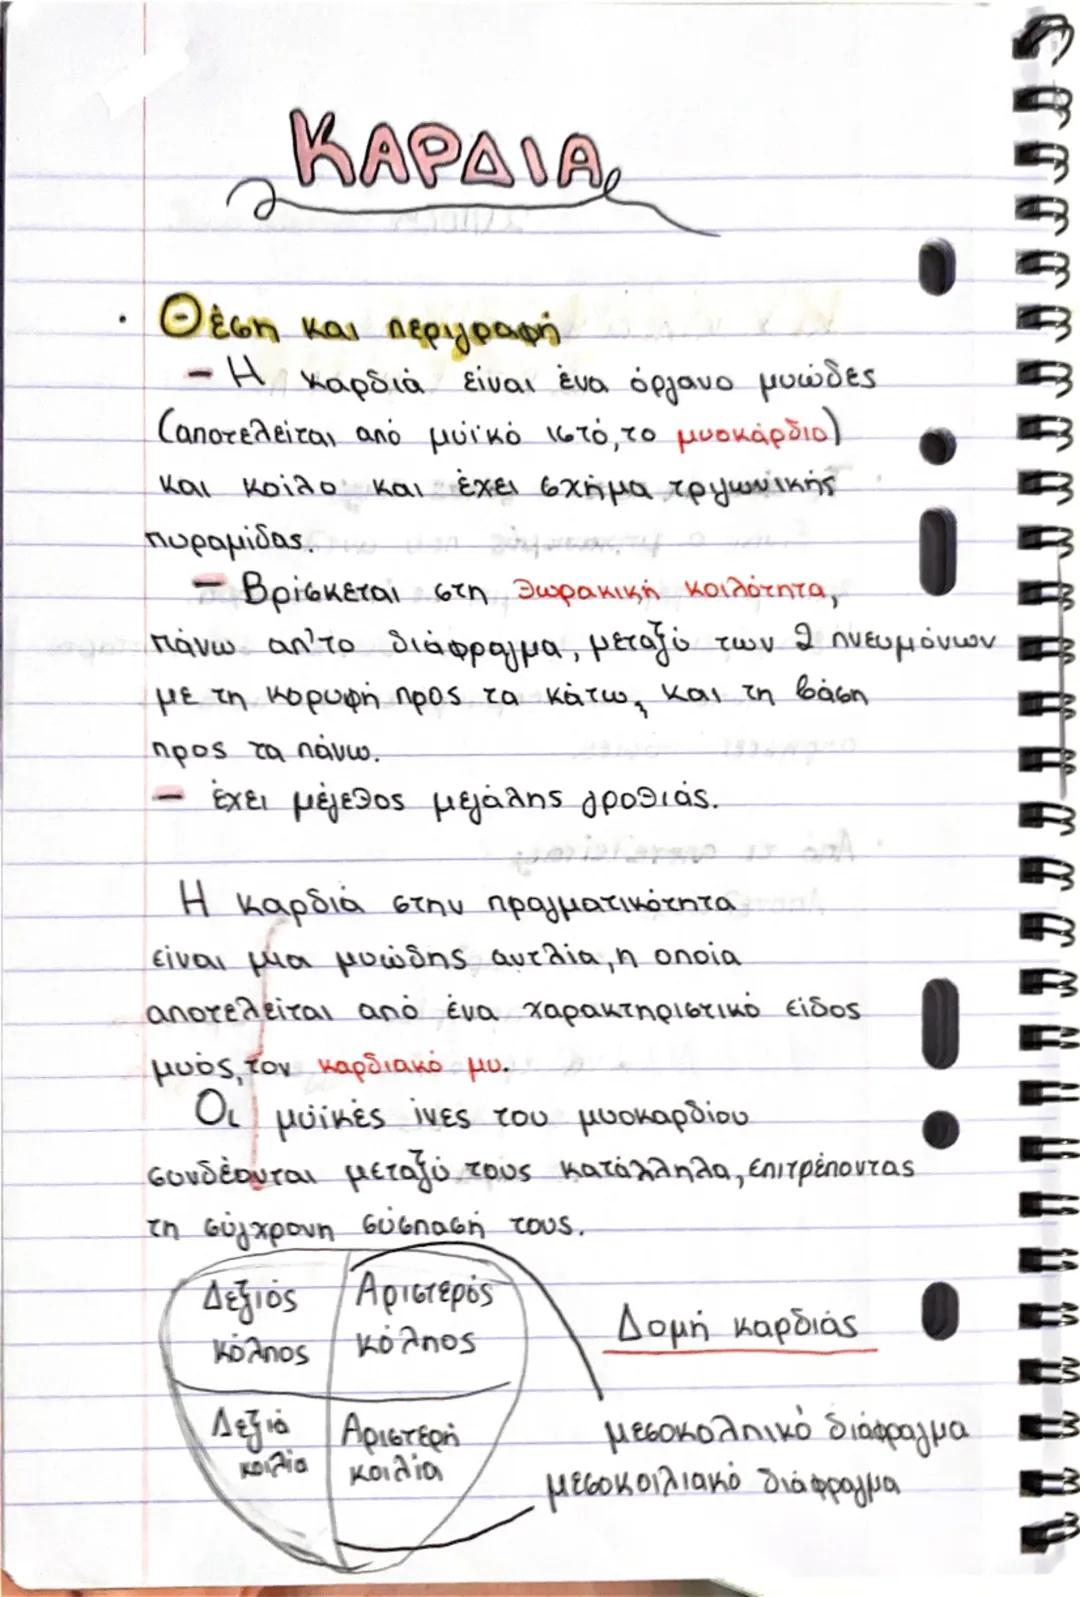 ΚΑΡΔΙΑ
· Θέση και περιγραφή
- Η καρδιά είναι ένα όργανο μυώδες
(αποτελείται από μυϊκό ιστό, το μυοκάρδιο)
και κοίλο και έχει σχήμα τριγωνικής
πυραμίδας.
- Βρίσκεται στη θωρακική κοιλότητα,
πάνω απ'το διάφραγμα, μεταξύ των 2 πνευμόνων
με τη κορυφή προς τα κάτω, και τη βάση
προς τα πάνω.
- έχει μέγεθος μεγάλης γροθιάς.
Η καρδιά στην πραγματικότητα
είναι μια μυώδης αντλία, η οποία
αποτελείται από ένα χαρακτηριστικό είδος
μυός, τον καρδιακό μυ.
Οι μυϊκές ίνες του μυοκαρδίου
συνδέονται μεταξύ τους κατάλληλα, επιτρέποντας
τη σύγχρονη σύσπασή τους.
Δεξιός κόλπος
Αριστερός κόλπος
Δομή καρδιάς
Δεξιά κοιλία
Αριστερή κοιλία
μεσοκολπικό διάφραγμα
μεσοκοιλιακό διάφραγμα